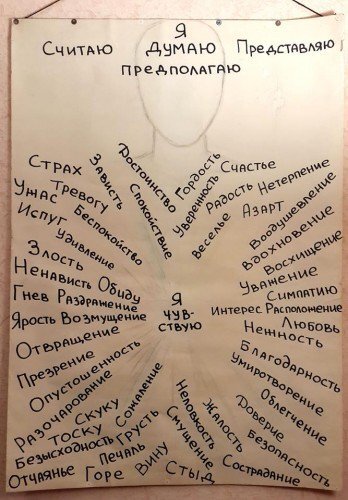 Я
Считаю Думаю Представляю
предполагаю
Достоинство
Гордость
Счастье
Страх
Зависть
Спокойствие
Уверенность
Радость
Нетерпение
Тревогу
Ужас
Беспокойство
Веселье
Азарт
Воодушевление
Испуг
Удивление
Вдохновение
Восхищение
Злость
Уважение
Ненависть Обиду
Симпатию
Гнев Раздражение
Я
Интерес Расположение
Ярость Возмущение
чув-
ствую
Любовь
Нежность
Отвращение
Благодарность
Презрение
Умиротворение
Опустошенность
Облегчение
Разочарование
Сожаление
Неловкость
Жалость
Доверие
Скуку
Грусть
Смущение
Безопасность
Тоску
Безысходность
Печаль
Вину
Стыд
Сострадание
Отчаянье
Горе